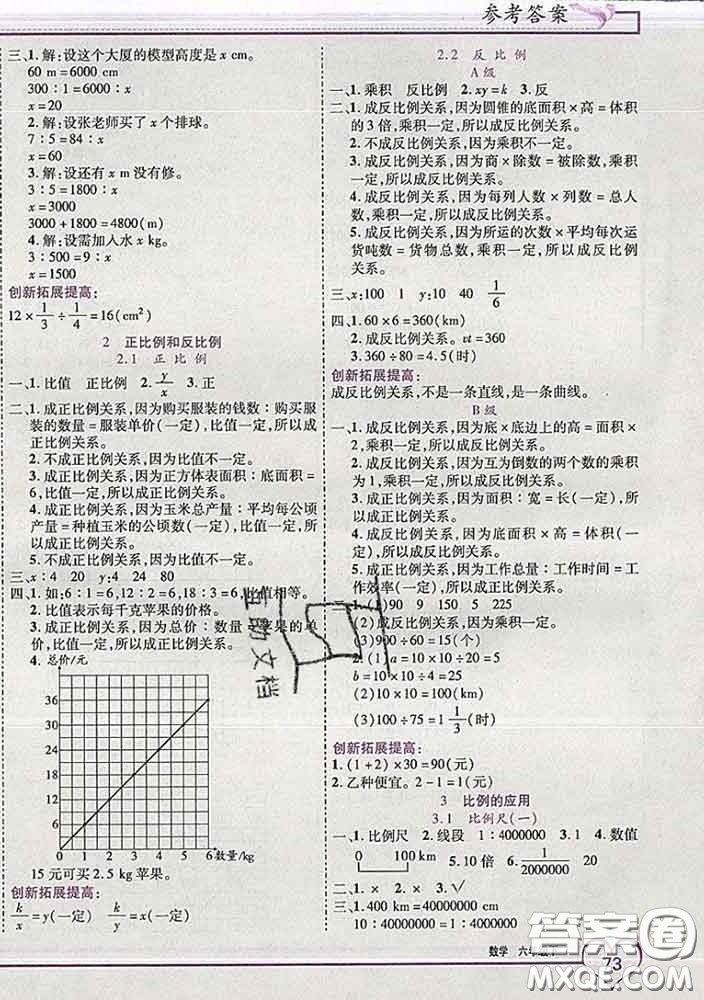 参考答案
三、1. 解:设这个大厦的模型高度是 x cm。
60 m=6000 cm
300∶1=6000∶x
x=20
2. 解:设张老师买了 x 个排球。
7∶5=84∶x
x=60
3. 解:设还有 x m 没有修。
3∶5=1800∶x
x=3000
3000+1800=4800(m)
4. 解:设需加人水 x kg。
3∶500=9∶x
x=1500
创新拓展提高:
12×1/3÷1/4=16(cm²)
2 正比例和反比例
2.1 正比例
一、1. 比值 正比例 2. y/x 3. 正
二、1. 成正比例关系,因为购买服装的钱数∶购买服
装的数量=服装单价(一定),比值一定,所以成
正比例关系。
2. 不成正比例关系,因为比值不一定。
3. 成正比例关系,因为正方体表面积∶底面积=
6,比值一定,所以成正比例关系。
4. 成正比例关系,因为玉米总产量∶平均每公顷
产量=种植玉米的公顷数(一定),比值一定,所
以成正比例关系。
5. 不成正比例关系,因为比值不一定。
三、x:4 20 y:4 24 80
四、1. 如:6∶1=6,12∶2=6,18∶3=6,比值相等。
2. 比值表示每千克苹果的价格。
3. 成正比例关系,因为总价∶数量=苹果的单
价(一定),比值一定,所以成正比例关系。
4. 总价/元
36
30
24
18
12
6
0 1 2 3 4 5 6 数量/kg
15 元可买 2.5 kg 苹果。
创新拓展提高:
k/x=y(一定) k/y=x(一定)
2.2 反比例
A 级
一、1. 乘积 反比例 2. xy=k 3. 反
二、1. 成反比例关系,因为圆锥的底面积×高=体积
的 3 倍,乘积一定,所以成反比例关系。
2. 不成反比例关系,因为乘积不一定。
3. 成反比例关系,因为商×除数=被除数,乘积
一定,所以成反比例关系。
4. 成反比例关系,因为每列人数×列数=总人
数,乘积一定,所以成反比例关系。
5. 成反比例关系,因为所运的次数×平均每次运
货吨数=货物总数,乘积一定,所以成反比例
关系。
三、x:100 1 y:10 40 1/6
四、1. 60×6=360(km)
2. 成反比例关系。vt=360
3. 360÷80=4.5(时)
创新拓展提高:
成反比例关系,不是一条直线,是一条曲线。
B 级
一、1. 成反比例关系,因为底×底边上的高=面积×
2,乘积一定,所以成反比例关系。
2. 成反比例关系,因为互为倒数的两个数的乘积
为 1,乘积一定,所以成反比例关系。
3. 成正比例关系,因为面积∶宽=长(一定),所
以成正比例关系。
4. 成反比例关系,因为底面积×高=体积(一
定),所以成反比例关系。
5. 成正比例关系,因为工作总量∶工作时间=工
作效率(一定),所以成正比例关系。
二、1. (1)90 9 150 5 225
(2)成反比例关系,因为乘积一定。
(3)900÷60=15(个)
2. (1)a=10×10÷20=5
b=10×10÷4=25
(2)10×10=100(km)
(3)100÷75=1 1/3(时)
创新拓展提高:
1. (1+2)×30=90(元)
2. 乙种便宜。2-1=1(元)
3 比例的应用
3.1 比例尺(一)
一、1. 比例尺 2. 线段 1∶4000000 3. 1 4. 数值
0 100 km 5. 10 倍 6. 1/2000000 20
二、1. × 2. × 3. √
三、1. 400 km=40000000 cm
10∶40000000=1∶4000000
数学 六年级下
73
互助文档
答案圈
MXQE.COM